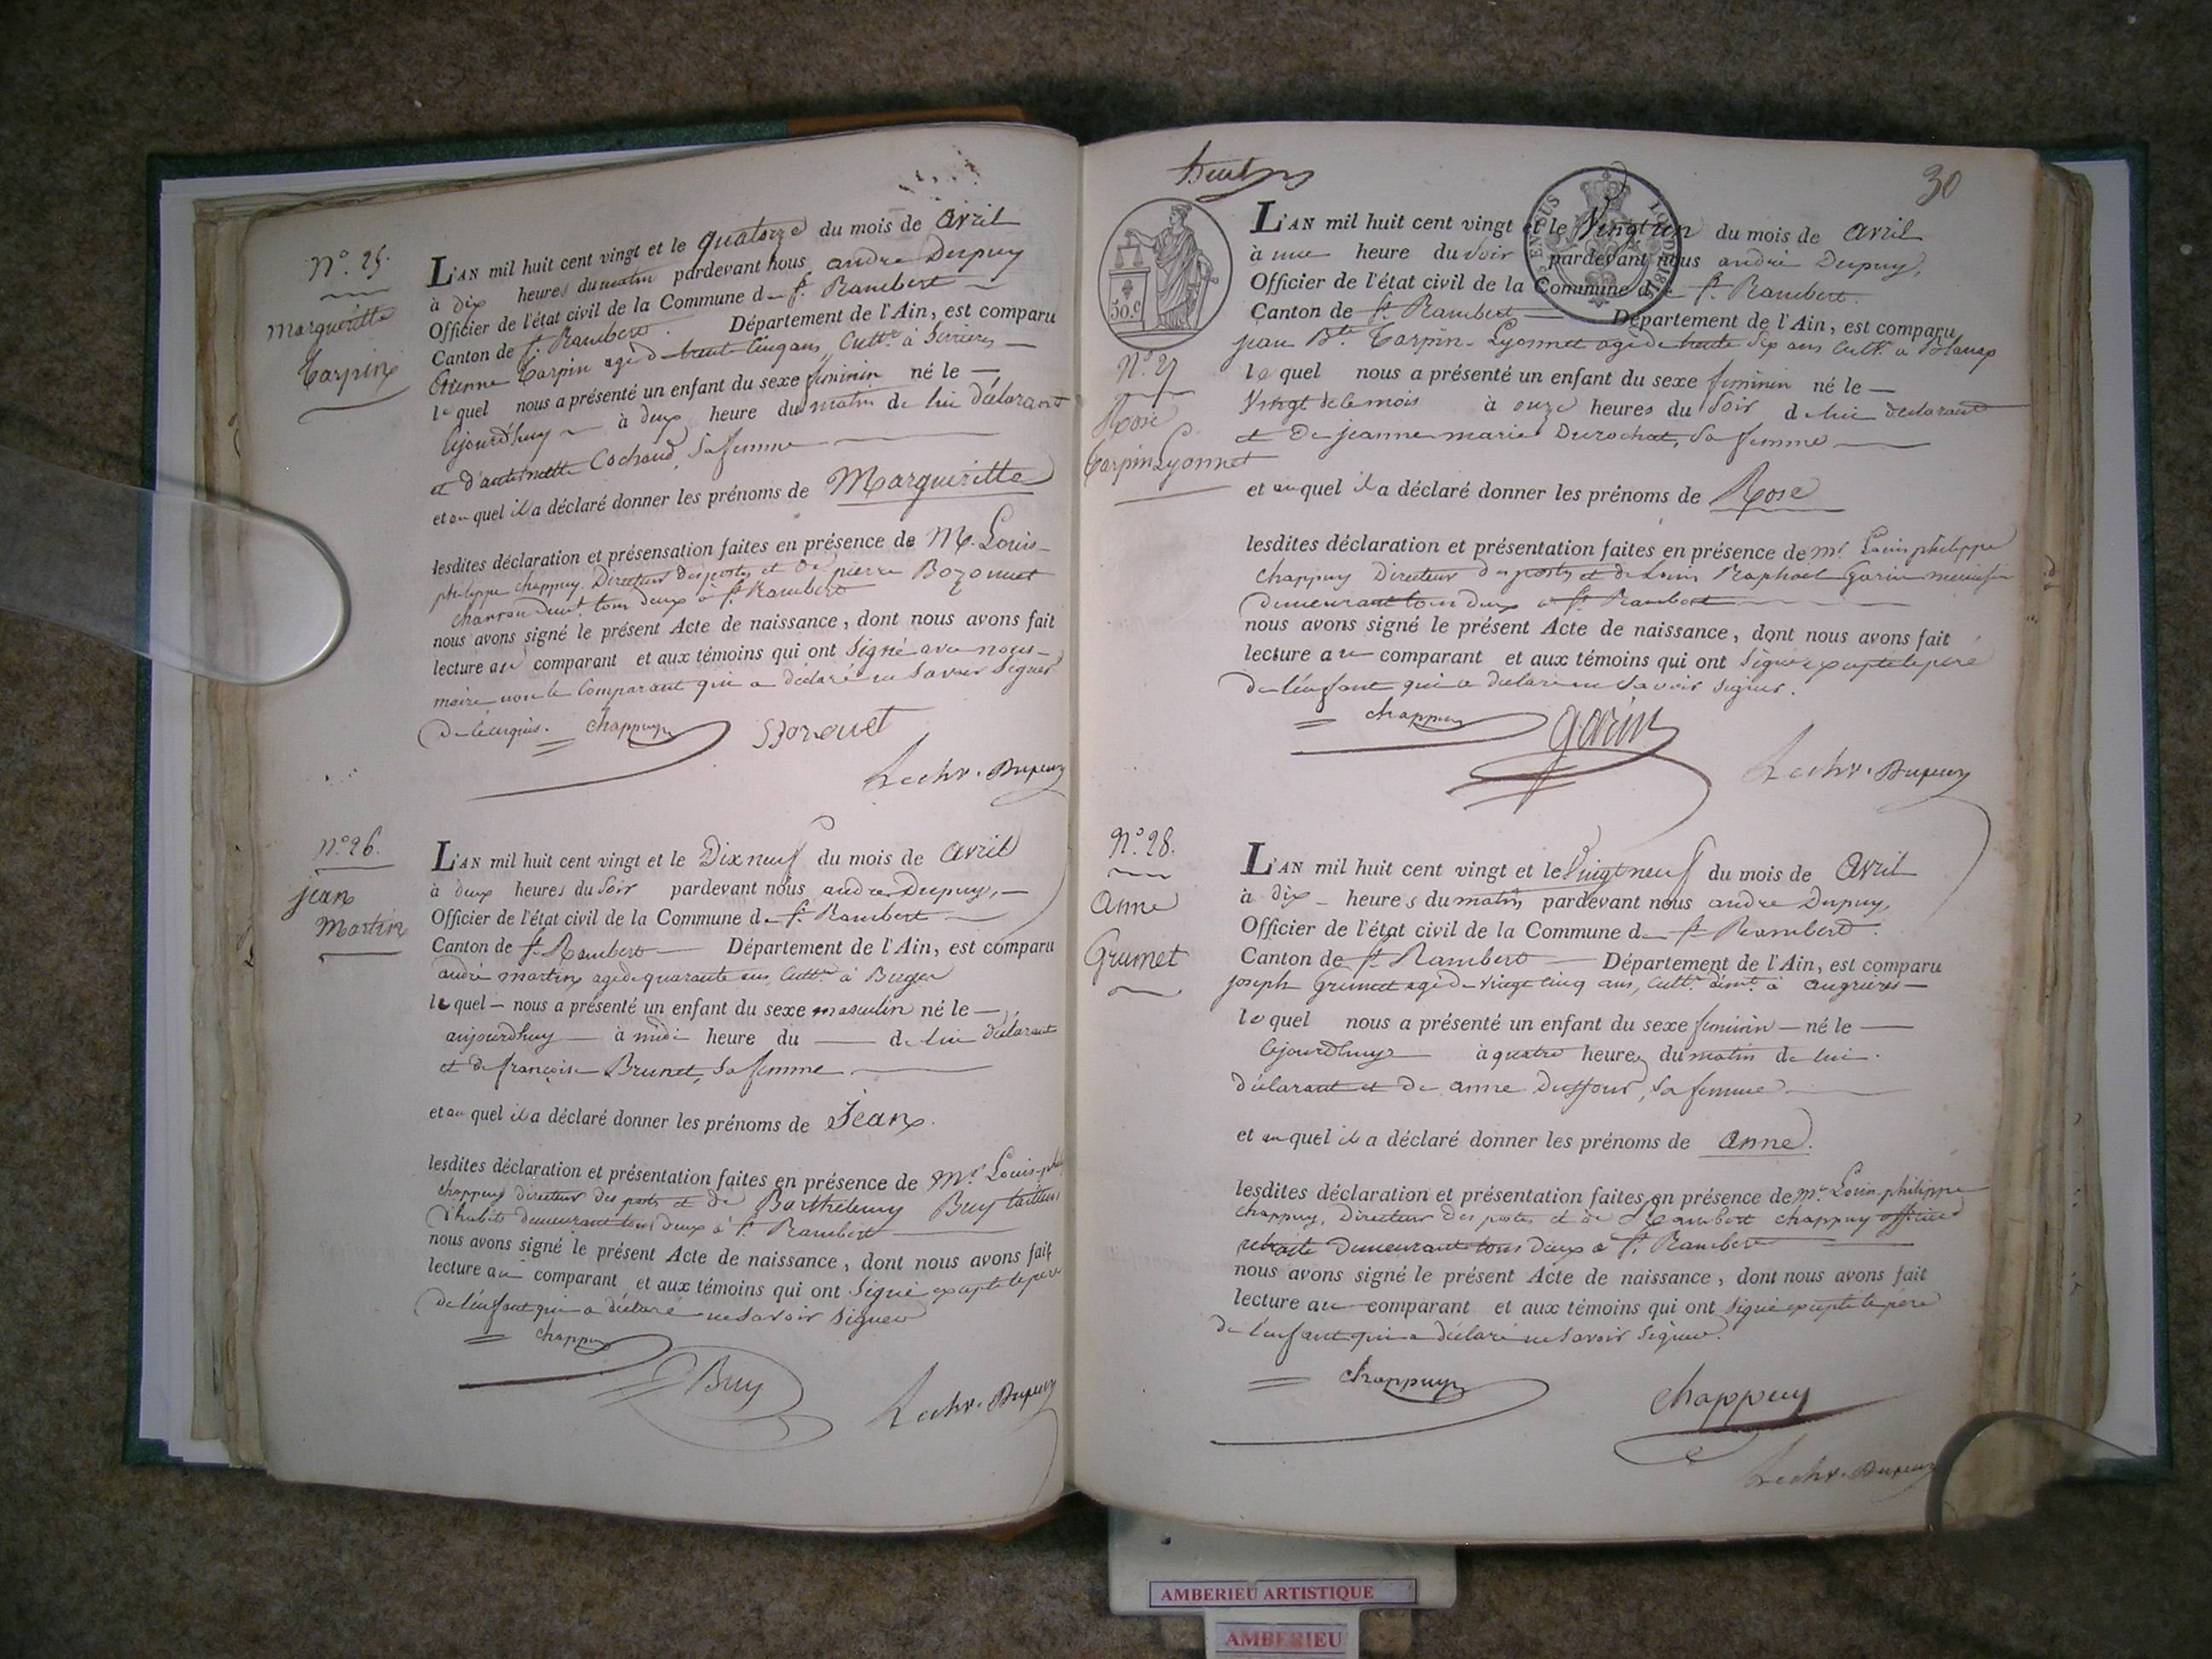 N.º 25.
Margueritte
Tarpin
L'AN mil huit cent vingt et le quatorze du mois de avril
à dix heures du matin pardevant nous andré Dupuy
Officier de l'état civil de la Commune de St. Rambert
Canton de St. Rambert. Département de l'Ain, est comparu
Etienne Tarpin agé de trente cinq ans, Cultr. à Serrieres
le quel nous a présenté un enfant du sexe feminin né le
cejourd'huy à deux heure du matin de lui déclarant
et d'antoinette Cochaud, sa femme
et au quel il a déclaré donner les prénoms de Margueritte
lesdites déclaration et présensation faites en présence de M. Louis
philippe chappuy, Directeur des postes et de pierre Bozonnet
charron demt. tous deux à St. Rambert
nous avons signé le présent Acte de naissance, dont nous avons fait
lecture au comparant et aux témoins qui ont signé avec nous
maire non le comparant qui a déclaré ne savoir signer
De ce enquis. chappuy Bozonet
Lechr. Dupuy
N.º 26.
jean
Martin
L'AN mil huit cent vingt et le Dix neuf du mois de avril
à deux heures du soir pardevant nous andré Dupuy,
Officier de l'état civil de la Commune de St. Rambert
Canton de St. Rambert Département de l'Ain, est comparu
andré martin agé de quarante ans, Cultr. à Buges
le quel nous a présenté un enfant du sexe masculin né le
aujourdhuy à midi heure du de lui déclarant
et de françoise Brunet, sa femme
et au quel il a déclaré donner les prénoms de Jean.
lesdites déclaration et présentation faites en présence de Mr. Louis
chappuy directeur des postes et de Barthelemy Buy tailleur
d'habits demeurant tous deux à St. Rambert
nous avons signé le présent Acte de naissance, dont nous avons fait
lecture au comparant et aux témoins qui ont signé excepté le père
de l'enfant qui a déclaré ne savoir signer
chappuy
Buy Lechr. Dupuy
30
50.C
L'AN mil huit cent vingt et le Vingt un du mois de avril
à une heure du soir pardevant nous andré Dupuy,
Officier de l'état civil de la Commune de St. Rambert.
Canton de St. Rambert Département de l'Ain, est comparu
jean Bte. Tarpin-Lyonnet agé de trente six ans Cultr. a
N.º 27
Rose
Tarpin Lyonnet
le quel nous a présenté un enfant du sexe feminin né le
Vingt de ce mois à onze heures du soir de lui declarant
et De jeanne marie Durochat, sa femme
et au quel il a déclaré donner les prénoms de Rose
lesdites déclaration et présentation faites en présence de mr. Louis philippe
chappuy Directeur des postes et de Louis Raphaël Garin menuisier
demeurant tous deux à St. Rambert
nous avons signé le présent Acte de naissance, dont nous avons fait
lecture au comparant et aux témoins qui ont signé excepté le père
de l'enfant qui a déclaré ne savoir signer.
chappuy garin
Lechr. Dupuy
N.º 28.
Anne
Grumet
L'AN mil huit cent vingt et le Vingt neuf du mois de Avril
à dix heures du matin pardevant nous andré Dupuy,
Officier de l'état civil de la Commune de St. Rambert.
Canton de St. Rambert Département de l'Ain, est comparu
joseph Grumet agé de vingt cinq ans, Cultr. demt. à angrieres
le quel nous a présenté un enfant du sexe feminin né le
cejourdhuy à quatre heures du matin de lui
déclarant et de anne Dufour, sa femme
et au quel il a déclaré donner les prénoms de anne.
lesdites déclaration et présentation faites en présence de mr. Louis philippe
chappuy, Directeur des postes et de Rambert chappuy officier
retraité demeurant tous deux à St. Rambert
nous avons signé le présent Acte de naissance, dont nous avons fait
lecture au comparant et aux témoins qui ont signé excepté le père
de l'enfant qui a déclaré ne savoir signer.
chappuy chappuy
Lechr. Dupuy
AMBERIEU ARTISTIQUE
AMBERIEU